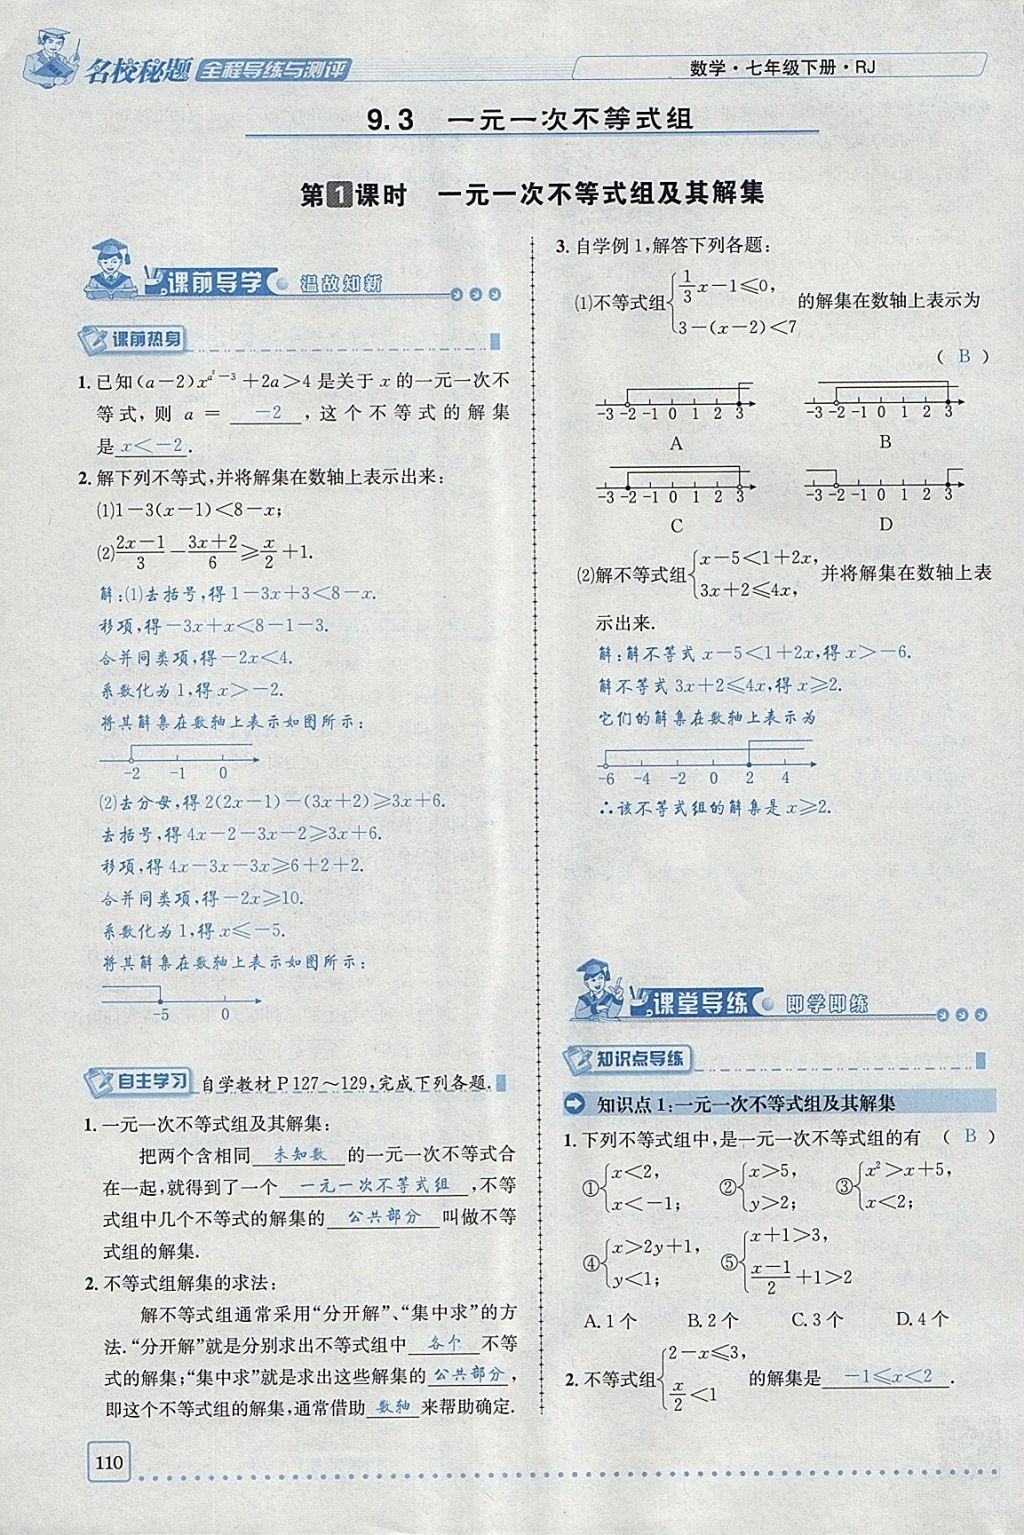 名校秘题 全程导练与测评
数学·七年级下册·RJ
9.3 一元一次不等式组
第1课时 一元一次不等式组及其解集
课前导学 温故知新
课前热身
1. 已知(a-2)x^{a²-3}+2a>4是关于x的一元一次不
等式,则 a = -2 ,这个不等式的解集
是 x<-2 .
2. 解下列不等式,并将解集在数轴上表示出来:
(1)1-3(x-1)<8-x;
(2)\frac{2x-1}{3}-\frac{3x+2}{6}≥\frac{x}{2}+1.
解:(1)去括号,得1-3x+3<8-x.
移项,得-3x+x<8-1-3.
合并同类项,得-2x<4.
系数化为1,得x>-2.
将其解集在数轴上表示如图所示:
-2 -1 0
(2)去分母,得2(2x-1)-(3x+2)≥3x+6.
去括号,得4x-2-3x-2≥3x+6.
移项,得4x-3x-3x≥6+2+2.
合并同类项,得-2x≥10.
系数化为1,得x≤-5.
将其解集在数轴上表示如图所示:
-5 0
自主学习 自学教材P127~129,完成下列各题.
1. 一元一次不等式组及其解集:
把两个含相同 未知数 的一元一次不等式合
在一起,就得到了一个 一元一次不等式组 ,不等
式组中几个不等式的解集的 公共部分 叫做不等
式组的解集.
2. 不等式组解集的求法:
解不等式组通常采用“分开解”、“集中求”的方
法.“分开解”就是分别求出不等式组中 各个 不等
式的解集;“集中求”就是求出这些解集的 公共部分 ,
即这个不等式组的解集,通常借助 数轴 来帮助确定.
110
3. 自学例1,解答下列各题:
(1)不等式组{\frac{1}{3}x-1≤0, 的解集在数轴上表示为
3-(x-2)<7
( B )
-3 -2 -1 0 1 2 3 -3 -2 -1 0 1 2 3
A B
-3 -2 -1 0 1 2 3 -3 -2 -1 0 1 2 3
C D
(2)解不等式组{x-5<1+2x, 并将解集在数轴上表
3x+2≤4x,
示出来.
解:解不等式x-5<1+2x,得x>-6.
解不等式3x+2≤4x,得x≥2.
它们的解集在数轴上表示为
-6 -4 -2 0 2 4
∴该不等式组的解集是x≥2.
课堂导练 即学即练
知识点导练
知识点1:一元一次不等式组及其解集
1. 下列不等式组中,是一元一次不等式组的有 ( B )
①{x<2, ②{x>5, ③{x²>x+5,
x<-1; y>2; x<2;
④{x>2y+1, ⑤{x+1>3,
y<1; \frac{x-1}{2}+1>2
A. 1个 B. 2个 C. 3个 D. 4个
2. 不等式组{2-x≤3, 的解集是 -1≤x<2 .
\frac{x}{2}<1